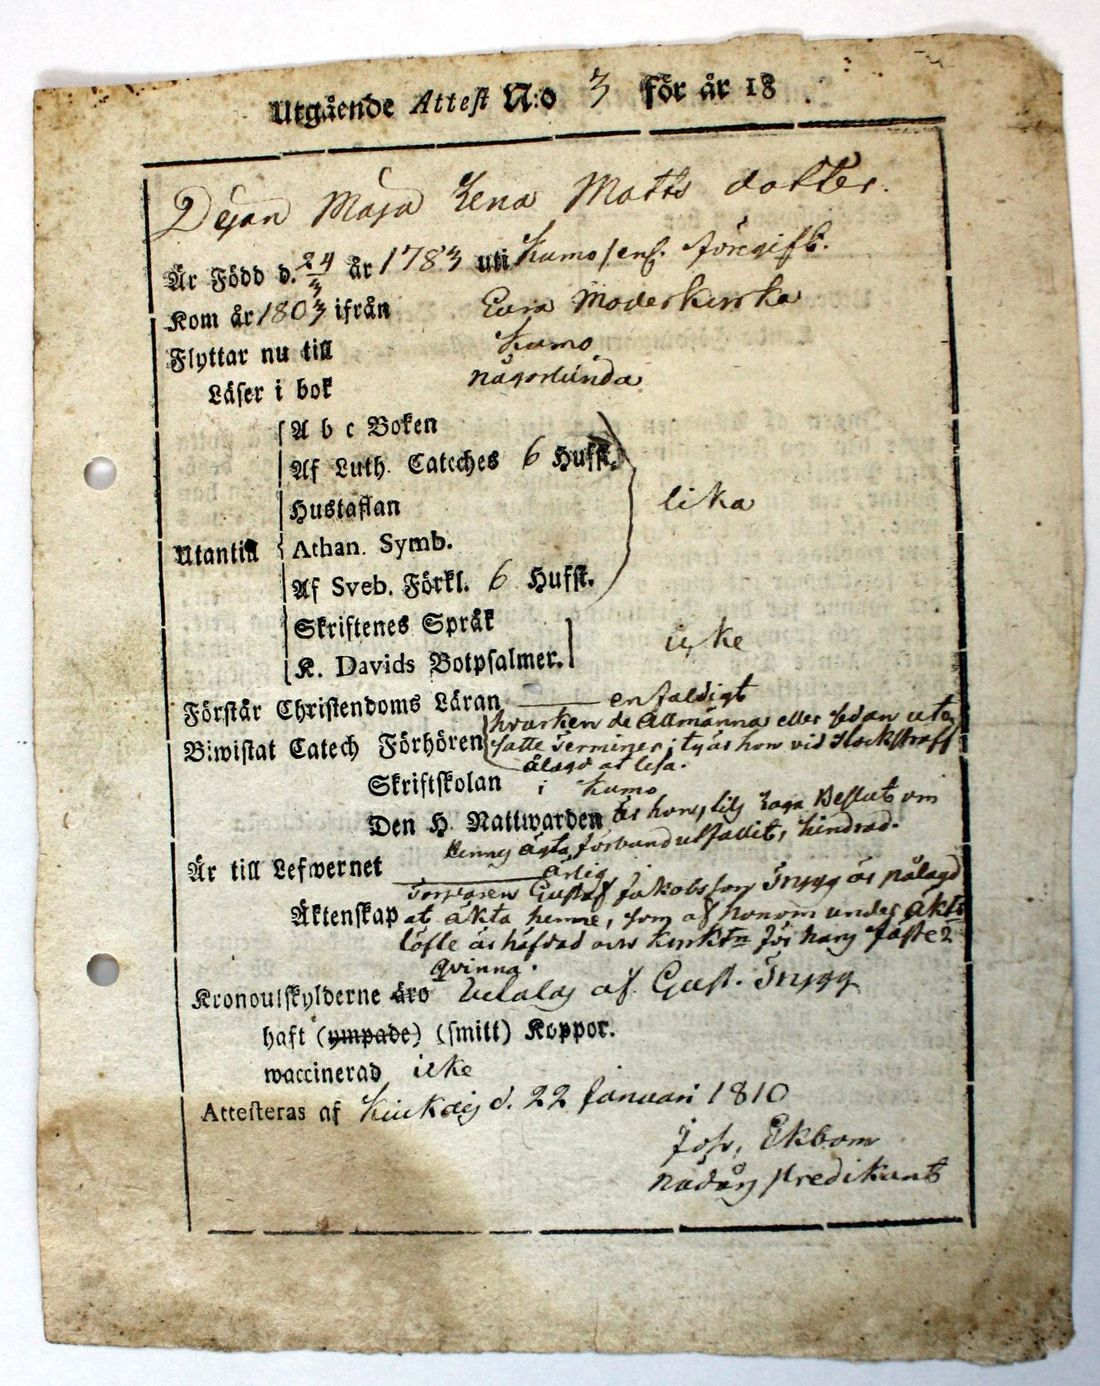 Utgående Attest N:o 3 för år 18
Pejan Maja Lena Matts dotter.
Är Född d. 24/3 år 1783 uti Kumo, enl. föregift.
Kom år 1803 ifrån Eura Moderkyrka
Flyttar nu till Kumo
Läser i bok någorlunda
A b c Boken
Af Luth. Cateches 6 Hufst.
Hustaflan lika
Utantill Athan. Symb.
Af Sveb. Förkl. 6 Hufst.
Skriftenes Språk
K. Davids Botpsalmer. icke
Förstår Christendoms Läran enfaldigt
hvarken de Allmänna eller sedan ute
Biwistat Catech Förhören satte Terminer; ty är hon vid Stockstraff
ålagd at läsa.
Skriftskolan i Kumo
Den H. Nattwarden är hon, tils Laga Beslut om
hennes ägta förbund utfallit, hindrad.
Är till Lefwernet ärlig
Torparen Gustaf Jakobsson Trygg är pålagd
Äktenskap at äkta henne, som af honom under äkt
löfte är häfdad och för hans fäste
qvinna.
Kronoutskylderne äro betalas af Gust. Trygg
haft (ympade) (smitt) Koppor.
waccinerad icke
Attesteras af d. 22 Januari 1810
Joh. Ekbom
Nådårs predikant